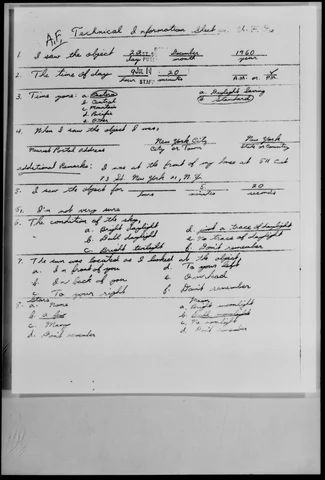 A.F. Technical Information Sheet
1. I saw the object December 1960
day month year
2. The time of day 20
hour A.M. or P.M.
3. Time zone: a. Eastern a. Daylight Saving
b. Central b. Standard
c. Mountain
d. Pacific
e. Other
4. When I saw the object I was,
New York City New York
Nearest Postal address City or Town State or Country
additional Remarks: I was at the front of my house at 511 East
73 St New York 21, N.Y.
5. I saw the object for 5 20
hours minutes seconds
5. I'm not very sure
6. The condition of the sky,
a. Bright daylight d. Just a trace of daylight
b. Dull daylight e. No trace of daylight
c. Bright twilight f. Don't remember
7. The sun was located as I looked at the object,
a. In front of you d. To your left
b. In back of you e. Overhead
c. To your right f. Don't remember
8. Stars Moon
a. None a. Bright moonlight
b. a few b. Dull moonlight
c. Many c. No moonlight
d. Don't remember d. Don't remember